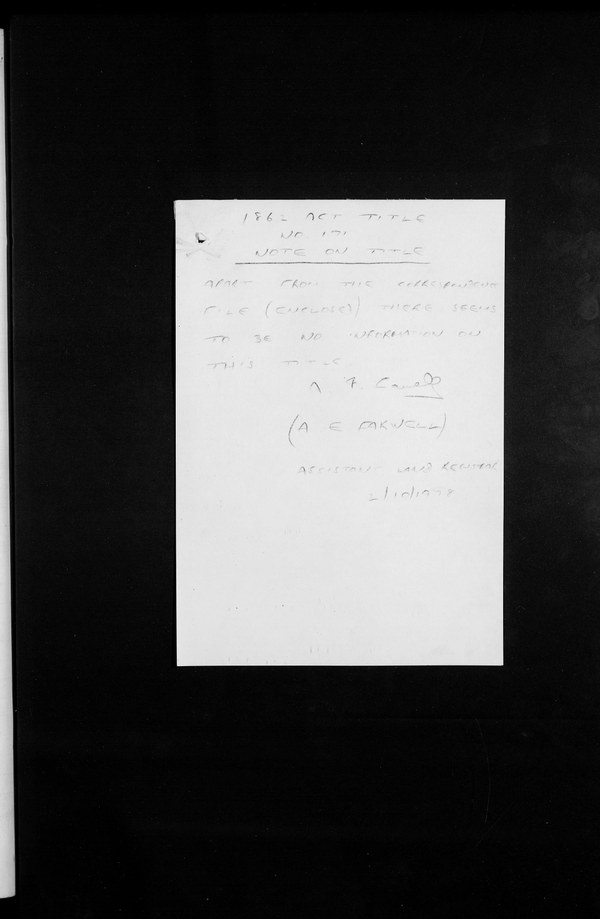 1862 ACT TITLE
NO 171
NOTE ON TITLE
APART FROM THE CORRESPONDENCE
FILE (ENCLOSED) THERE SEEMS
TO BE NO INFORMATION ON
THIS TITLE.
(A E FARWELL)
ASSISTANT LAND REGISTRAR
2/10/1978